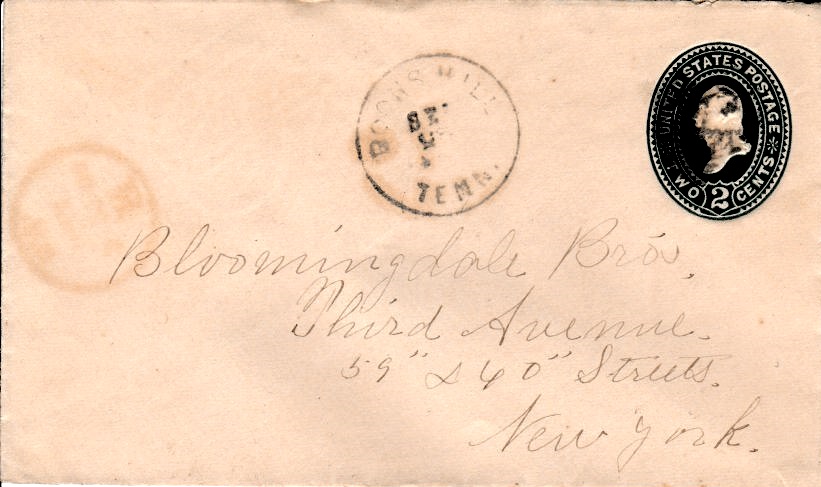 UNITED STATES POSTAGE
TWO 2 CENTS
MILL
TENN.
Bloomingdale Bros.
Third Avenue.
59" & 60" Streets.
New York.